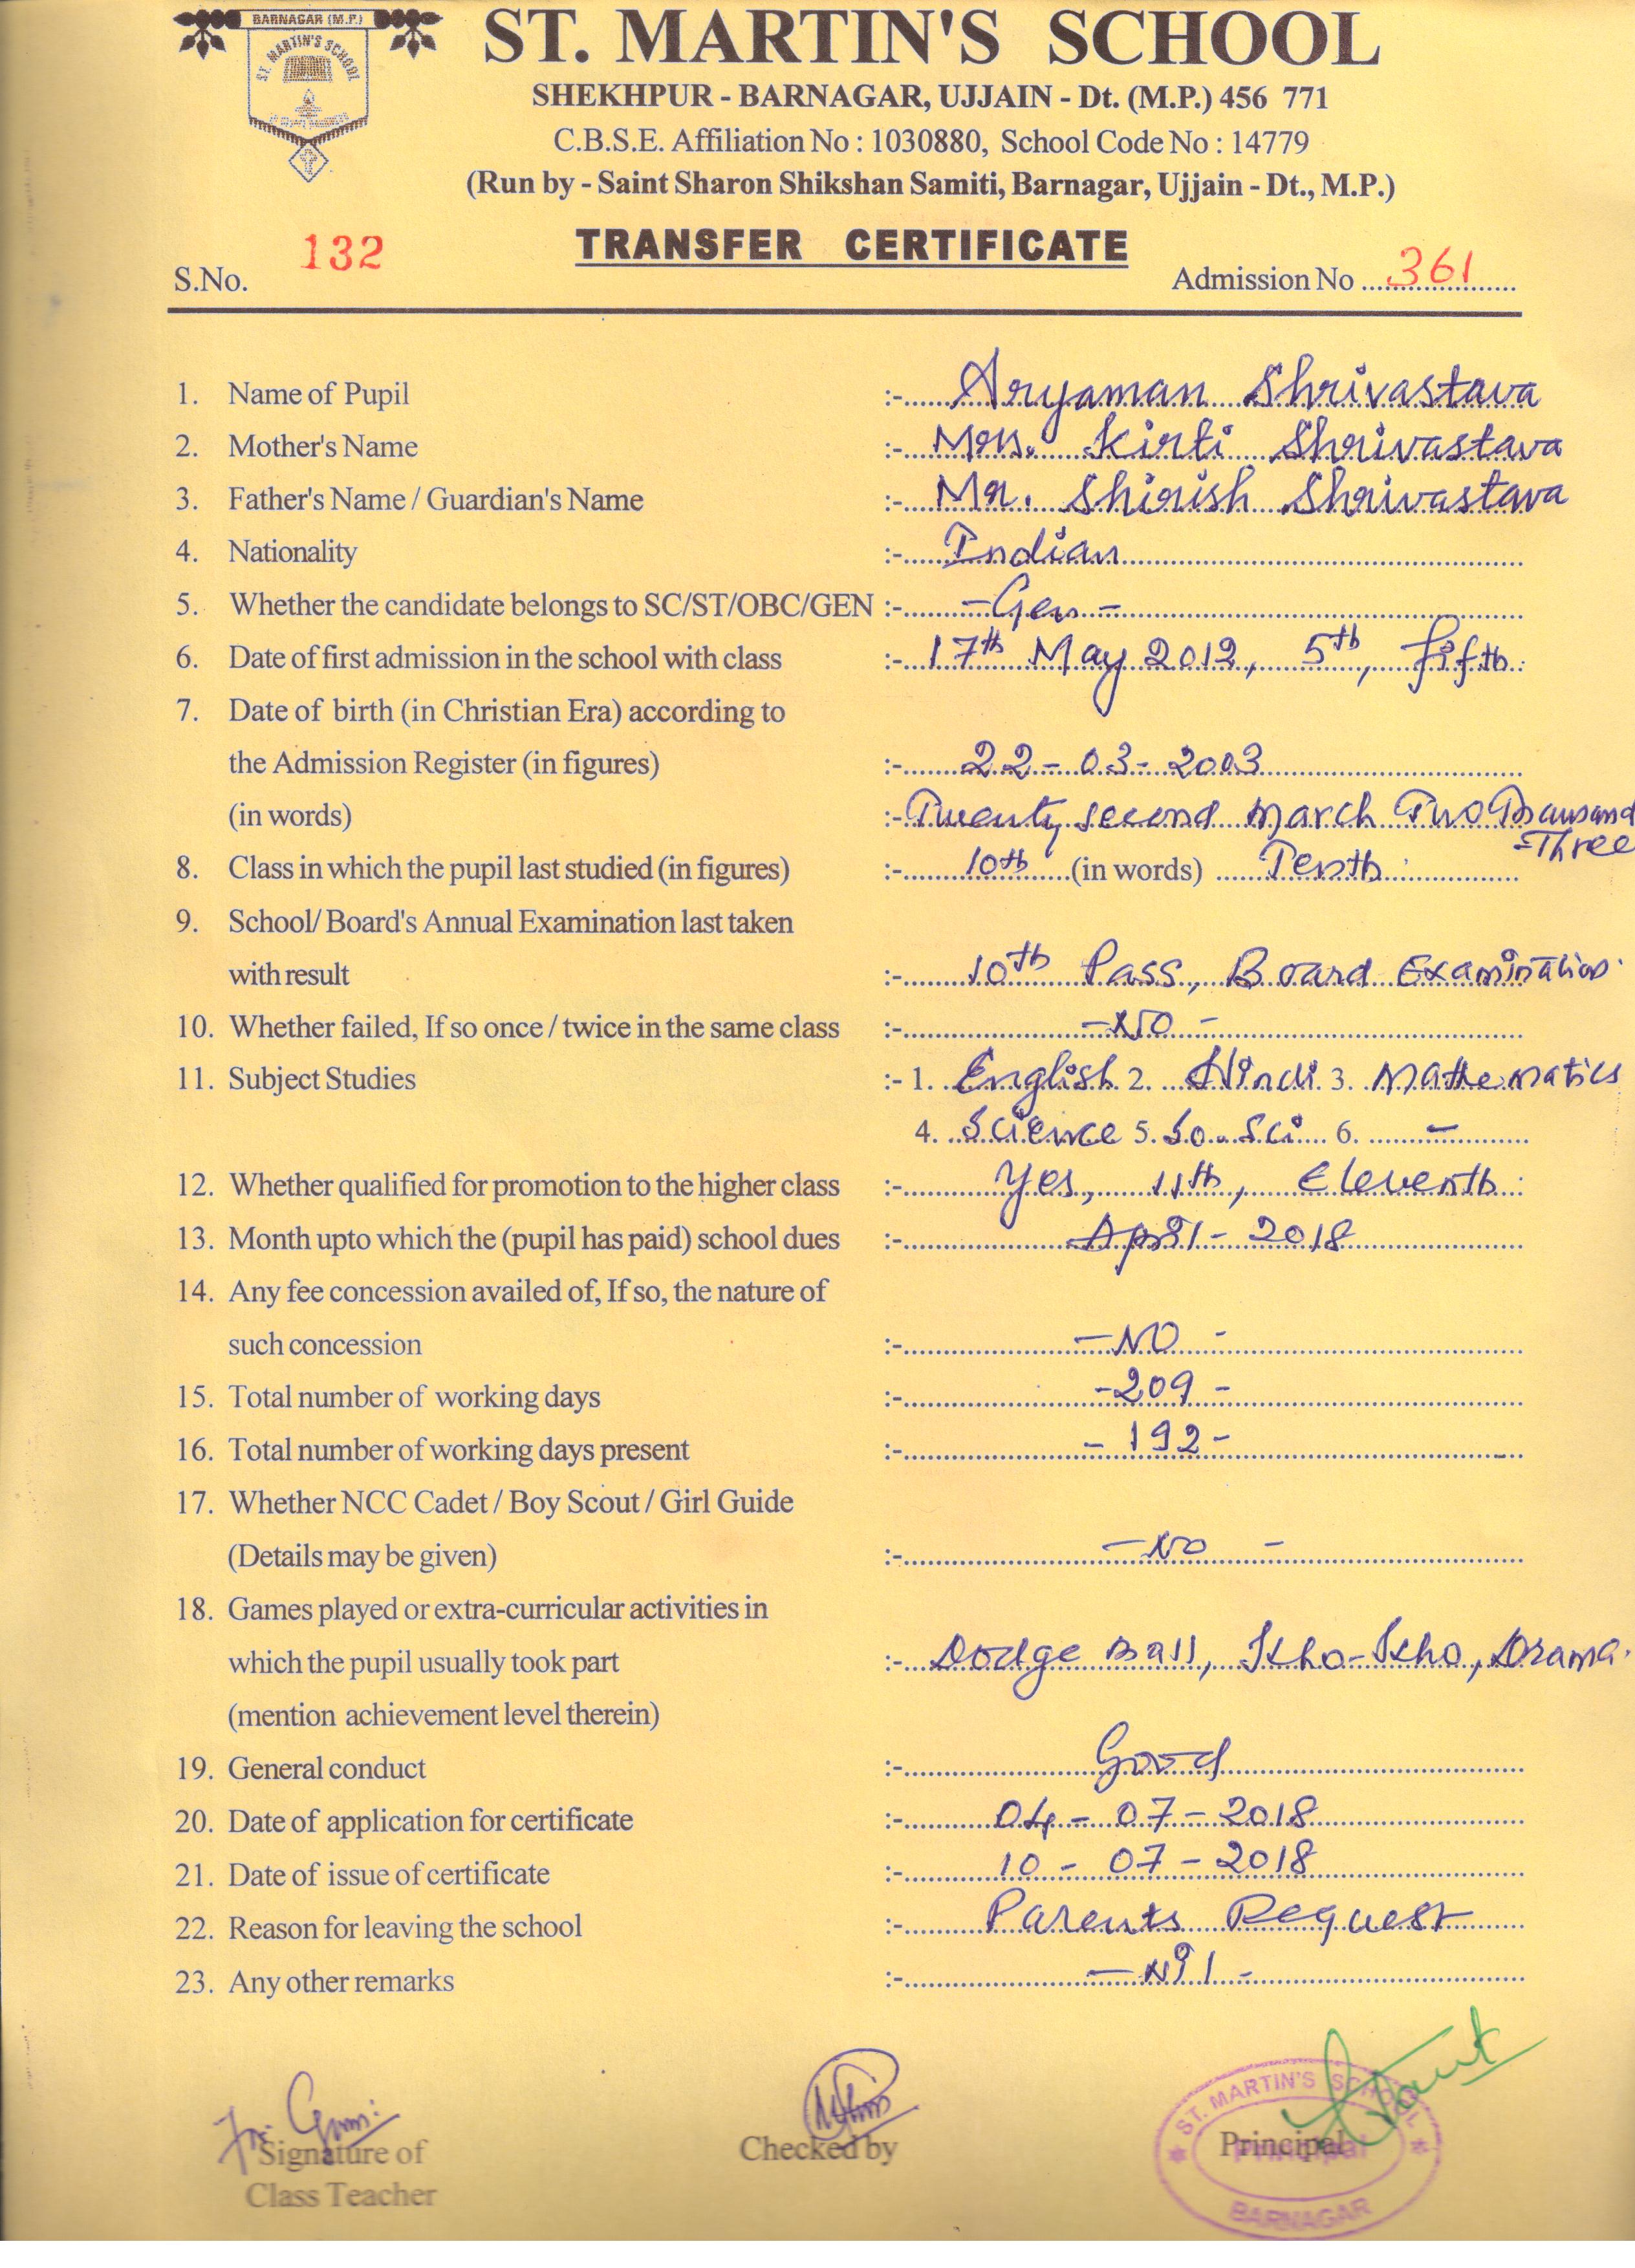 BARNAGAR (M.P.)
ST. MARTIN'S SCHOOL
ST. MARTIN'S SCHOOL
SHEKHPUR - BARNAGAR, UJJAIN - Dt. (M.P.) 456 771
C.B.S.E. Affiliation No : 1030880, School Code No : 14779
(Run by - Saint Sharon Shikshan Samiti, Barnagar, Ujjain - Dt., M.P.)
TRANSFER CERTIFICATE
S.No. 132 Admission No ...361...
1. Name of Pupil :- Aryaman Shrivastava
2. Mother's Name :- Mrs. Kirti Shrivastava
3. Father's Name / Guardian's Name :- Mr. Shirish Shrivastava
4. Nationality :- Indian
5. Whether the candidate belongs to SC/ST/OBC/GEN :- - Gen -
6. Date of first admission in the school with class :- 17th May 2012, 5th, fifth.
7. Date of birth (in Christian Era) according to
the Admission Register (in figures) :- 22-03-2003
(in words) :- Twenty second March Two Thousand
-Three
8. Class in which the pupil last studied (in figures) :- 10th (in words) Tenth
9. School/ Board's Annual Examination last taken
with result :- 10th Pass, Board Examination.
10. Whether failed, If so once / twice in the same class :- - NO -
11. Subject Studies :- 1. English 2. Hindi 3. Mathematics
4. Science 5. So. Sci 6. -
12. Whether qualified for promotion to the higher class :- Yes, 11th, Eleventh.
13. Month upto which the (pupil has paid) school dues :- April - 2018
14. Any fee concession availed of, If so, the nature of
such concession :- - NO -
15. Total number of working days :- -209-
16. Total number of working days present :- -192-
17. Whether NCC Cadet / Boy Scout / Girl Guide
(Details may be given) :- - NO -
18. Games played or extra-curricular activities in
which the pupil usually took part :- Dodge Ball, Kho-Kho, Drama.
(mention achievement level therein)
19. General conduct :- Good
20. Date of application for certificate :- 04-07-2018
21. Date of issue of certificate :- 10-07-2018
22. Reason for leaving the school :- Parents Request
23. Any other remarks :- - Nil -
Signature of
Class Teacher
Checked by
Principal
ST. MARTIN'S SCHOOL
Principal
BARNAGAR